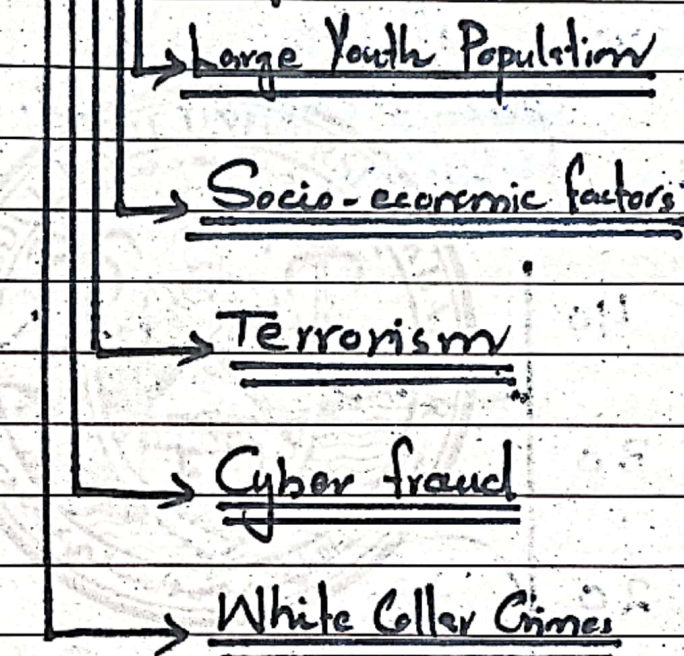 Large Youth Population
Socio-economic factors
Terrorism
Cyber fraud
White Collar Crimes